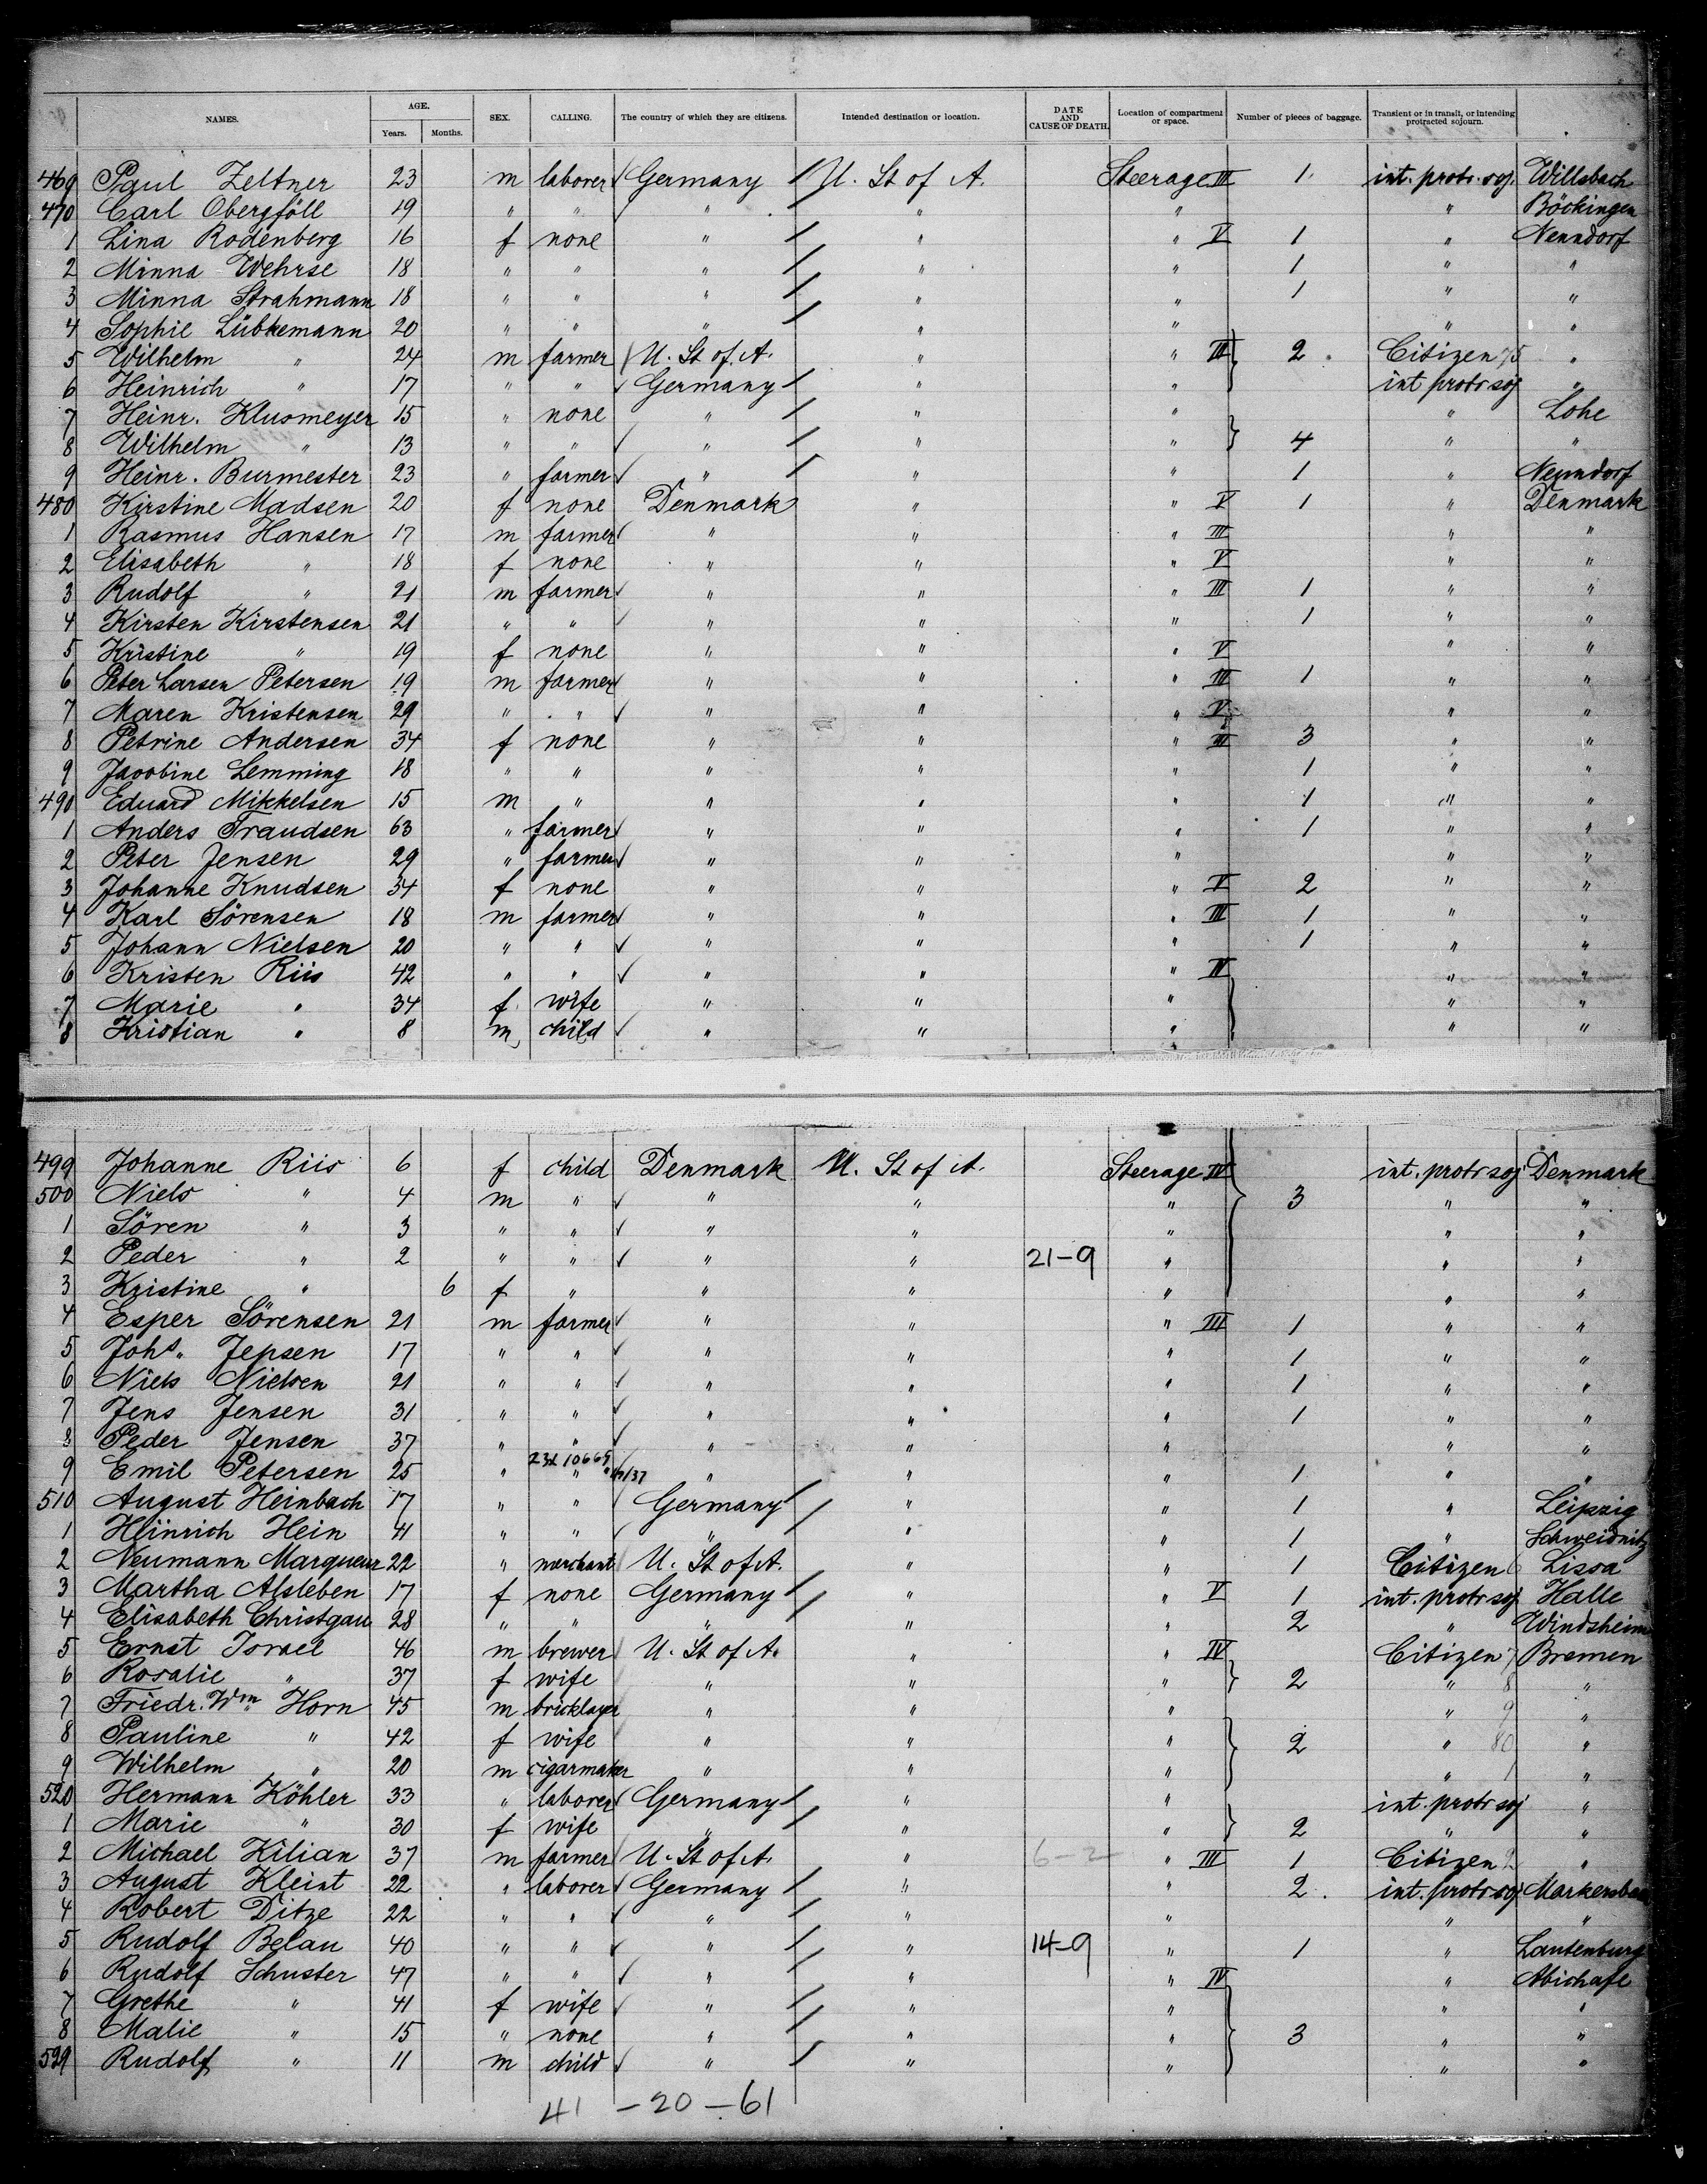 NAMES. AGE. Years. Months. SEX. CALLING. The country of which they are citizens. Intended destination or location. DATE AND CAUSE OF DEATH. Location of compartment or space. Number of pieces of baggage. Transient or in transit, or intending protracted sojourn.
469 Paul Zeltner 23 m laborer Germany U. St of A. Steerage III 1 int. protr. soj. Willsbach
470 Carl Obergföll 19 " " " " " " Böckingen
1 Lina Rodenberg 16 f none " " " V 1 " Nenndorf
2 Minna Wehrse 18 " " " " " 1 " "
3 Minna Strahmann 18 " " " " " 1 " "
4 Sophie Lübkemann 20 " " " " " " "
5 Wilhelm " 24 m farmer U. St of. A. " " III 2 Citizen 75 "
6 Heinrich " 17 " " Germany " " int protr soj "
7 Heinr. Klusmeyer 15 " none " " " " Lohe
8 Wilhelm " 13 " " " " " 4 " "
9 Heinr. Burmester 23 " farmer " " " 1 " Nenndorf
480 Kirstine Madsen 20 f none Denmark " " V 1 " Denmark
1 Rasmus Hansen 17 m farmer " " " III " "
2 Elisabeth " 18 f none " " " V " "
3 Rudolf " 21 m farmer " " " III 1 " "
4 Kirsten Kirstensen 21 " " " " " 1 " "
5 Kristine " 19 f none " " " V " "
6 Peter Larsen Petersen 19 m farmer " " " III 1 " "
7 Maren Kristensen 29 " " " " " V " "
8 Petrine Andersen 34 f none " " " III 3 " "
9 Jacobine Lemming 18 " " " " " 1 " "
490 Eduard Mikkelsen 15 m " " " " 1 " "
1 Anders Traudsen 63 " farmer " " " 1 " "
2 Peter Jensen 29 " farmer " " " " "
3 Johanne Knudsen 34 f none " " " V 2 " "
4 Karl Sörensen 18 m farmer " " " III 1 " "
5 Johann Nielsen 20 " " " " " 1 " "
6 Kristen Riis 42 " " " " " IV " "
7 Marie " 34 f wife " " " " "
8 Kristian " 8 m child " " " " "
499 Johanne Riis 6 f child Denmark U. St of A. Steerage IV int. protr soj Denmark
500 Niels " 4 m " " " " 3 " "
1 Sören " 3 " " " " " " "
2 Peder " 2 " " " " 21-9 " " "
3 Kristine " 6 f " " " " " "
4 Esper Sörensen 21 m farmer " " " III 1 " "
5 Johs. Jepsen 17 " " " " " 1 " "
6 Niels Nielsen 21 " " " " " 1 " "
7 Jens Jensen 31 " " " " " 1 " "
8 Peder Jensen 37 " " " " " " "
9 Emil Petersen 25 " " " " " 1 " "
510 August Heinbach 17 " " Germany " " 1 " Leipzig
1 Heinrich Hein 41 " " " " " 1 " Schweidnitz
2 Neumann 22 " merchant U. St of A. " " 1 Citizen 6 Lissa
3 Martha Alsleben 17 f none Germany " " V 1 int. protr soj Halle
4 Elisabeth Christgau 28 " " " " " 2 " Windsheim
5 Ernst Israel 46 m brewer U. St of A. " " IV Citizen 7 Bremen
6 Rosalie " 37 f wife " " " 2 " 8 "
7 Friedr. Wm. Horn 45 m bricklayer " " " " 9 "
8 Pauline " 42 f wife " " " 2 " 80 "
9 Wilhelm " 20 m cigarmaker " " " " 1 "
520 Hermann Köhler 33 " laborer Germany " " int. protr soj "
1 Marie " 30 f wife " " " 2 " "
2 Michael Kilian 37 m farmer U. St of A. " 6-2 " III 1 Citizen 2 "
3 August Kleist 22 " laborer Germany " " 2 int. protr soj
4 Robert Ditze 22 " " " " " " "
5 Rudolf Belau 40 " " " " 14-9 " 1 " Lautenburg
6 Rudolf Schuster 47 " " " " " IV "
7 Grethe " 41 f wife " " " " "
8 Malie " 15 " none " " " 3 " "
529 Rudolf " 11 m child " " " " "
41 - 20 - 61